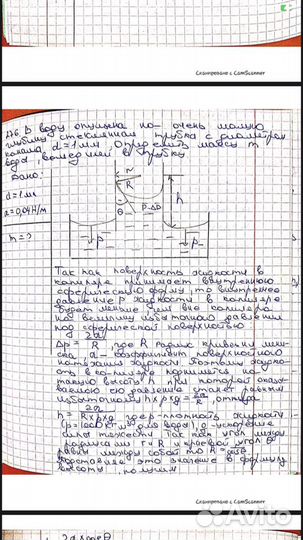 Сканировано с CamScanner
776. В воду опущена на очень малую
глубину стеклянная трубка с диаметром
канала d = 1 мм. Определить массу m
воды, вошедшей в трубку
Дано:
d = 1 мм
m = ?
r
R
θ
P-ΔP
h
P
P
Так как поверхность жидкости в
капилляре принимает
сферическую форму, то внутреннее
давление P жидкости в капилляре
будет меньше чем вне капилляра
на величину избыточного давления
под сферической поверхностью
Δp = 2α/R, где R радиус кривизны
α - коэффициент поверхностного
натяжения жидкости. Поэтому
в капилляре поднимется на
такую высоту h при которой
давление станет равным
избыточному h×ρ×g = 2α/R, откуда
h = 2α/R×ρ×g где ρ - плотность жидкости
для воды), g - ускорение
силы тяжести. Так как угол между
радиусами r и R и краевой угол θ
равны между собой то R =
Подставляя это значение в формулу
высоты, получим
Сканировано с CamScanner
Avito